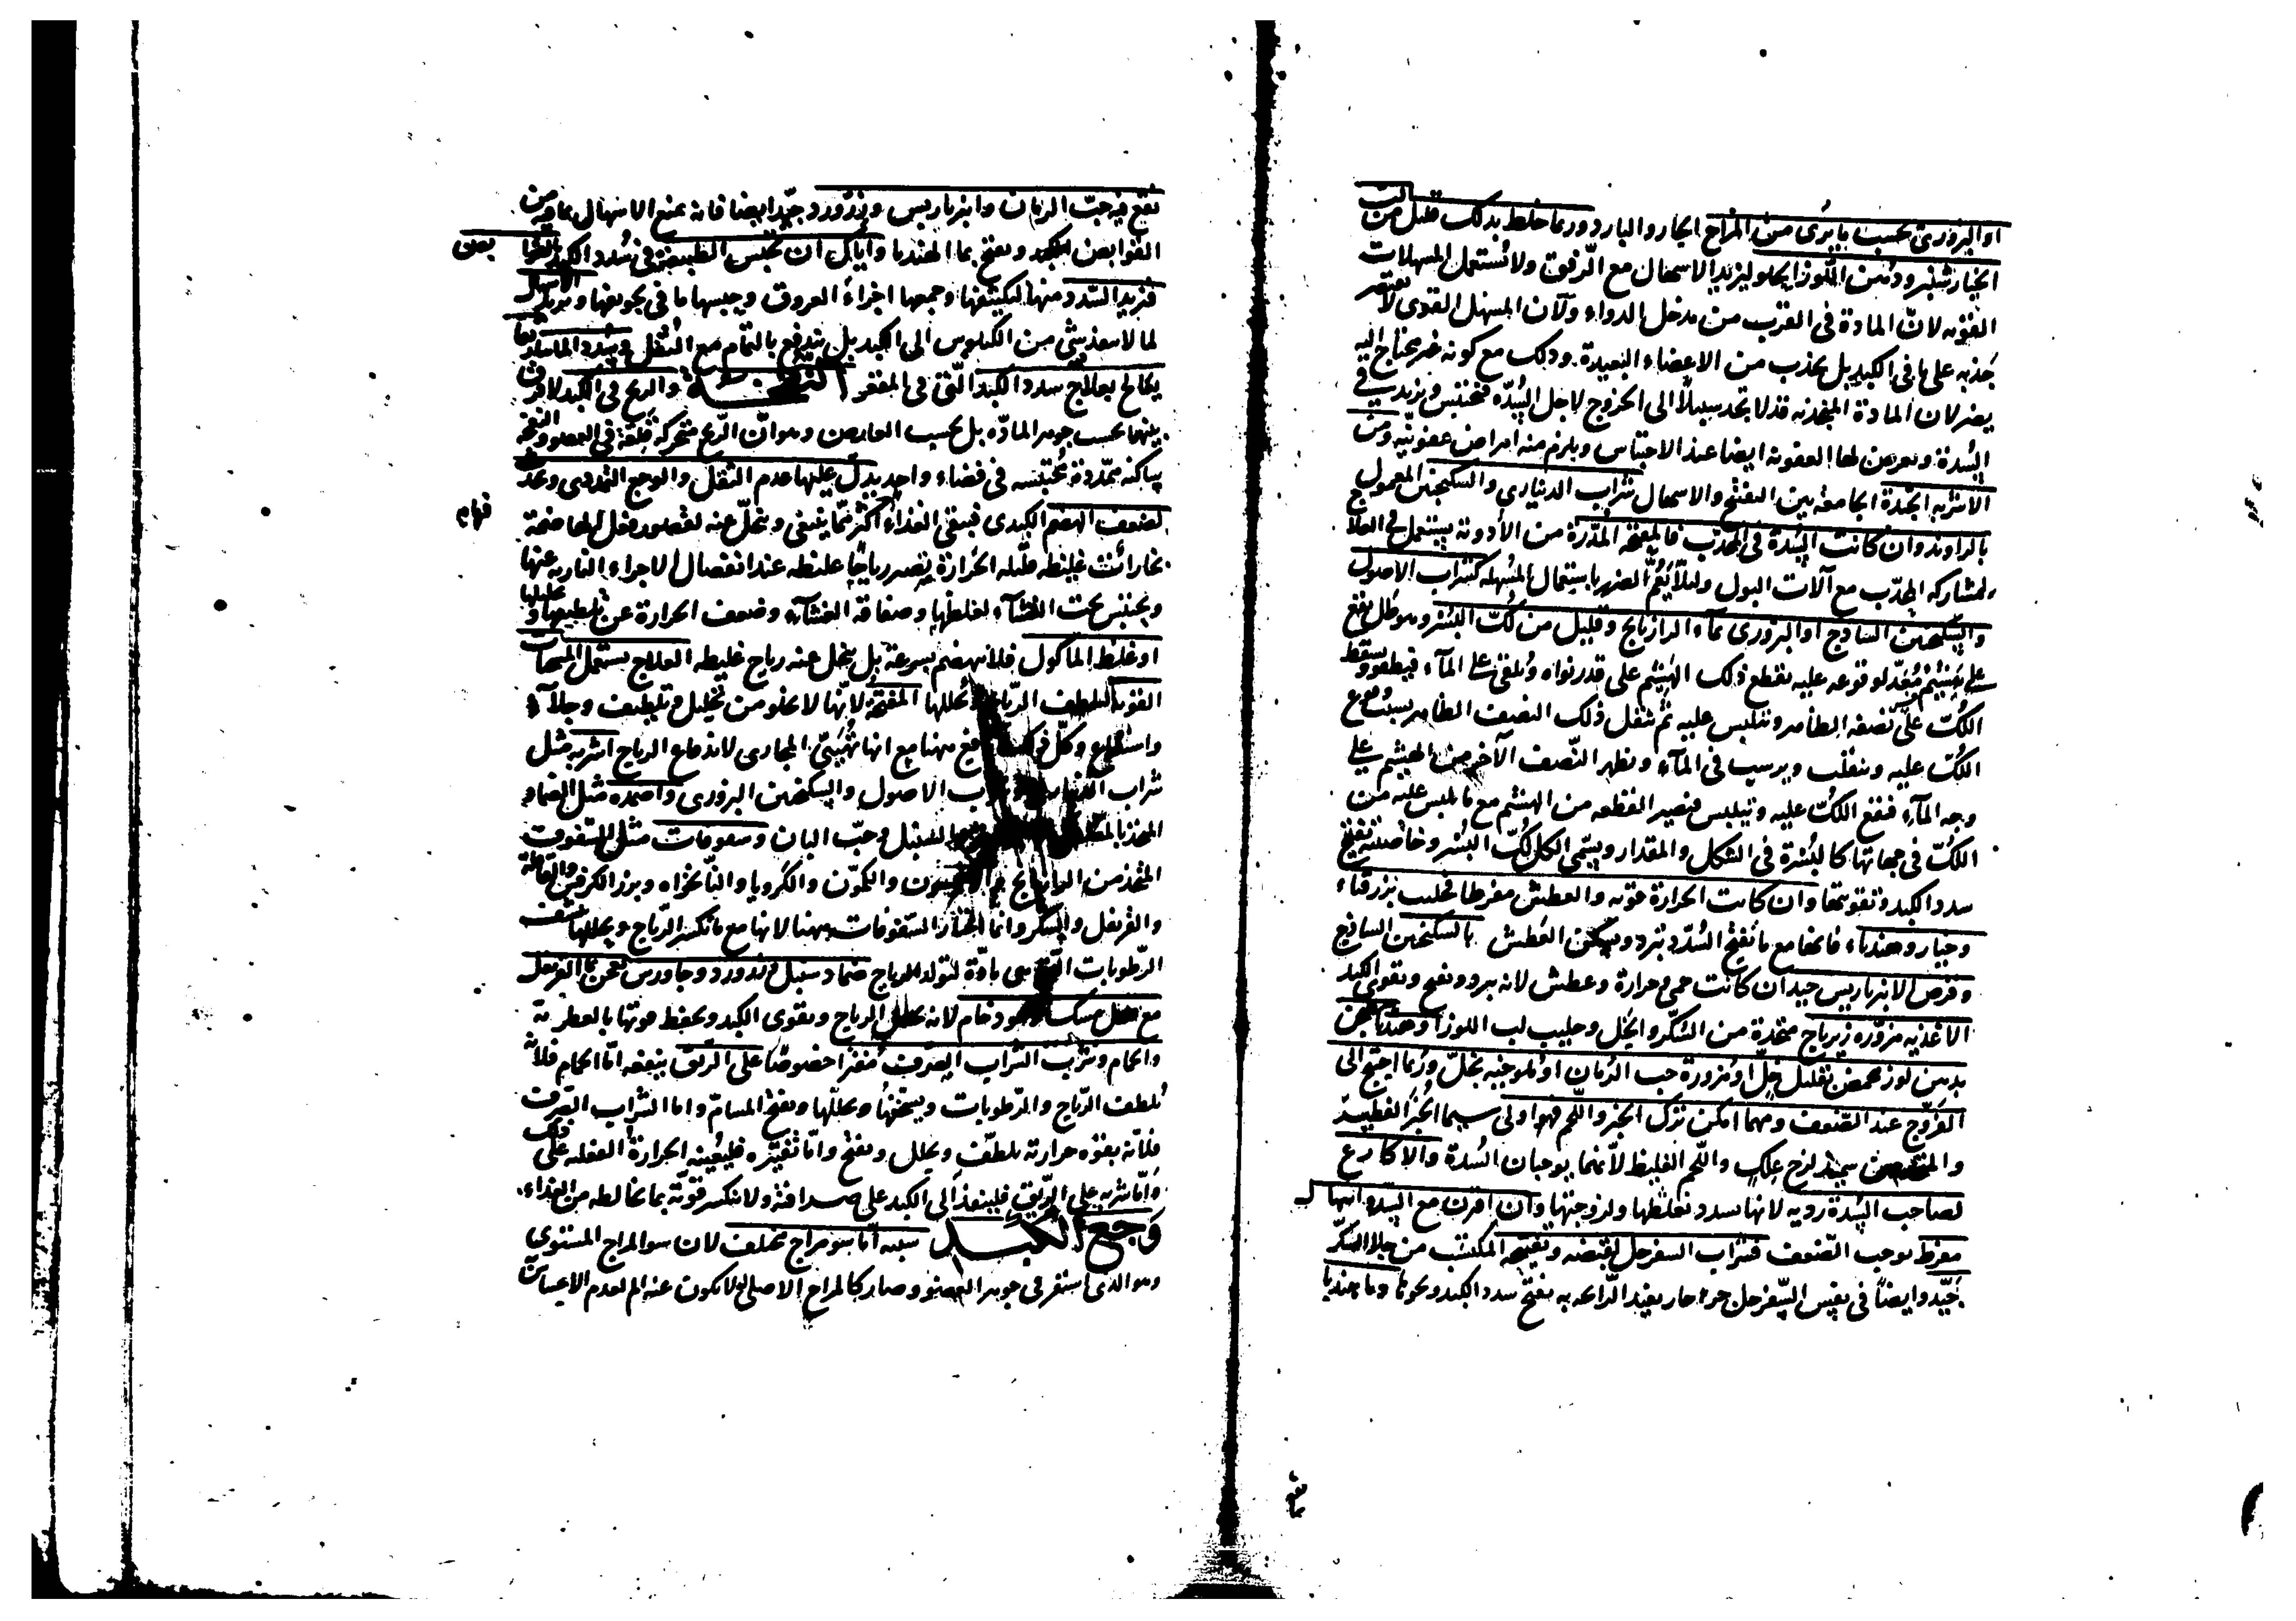 او البزورى بحسب ما يُرى من المزاج الحار والبارد وربما خلط بذلك قليل من لب
الخيارشنبر ودُهن اللّوز الحلو ليزيد الاسهال مع الرّفق ولا تُستعمل المسهلات
القويّه لانّ المادة فى القرب من مدخل الدواء ولانّ المسهل القوى لا يقتصر
جَذبه على ما فى الكبد بل يجذب من الاعضاء البعيدة وذلك مع كونه غير محتاج اليه
يضر لان المادة المنجذبه قد لا تجد سبيلاً الى الخروج لاجل السُدّه فتحتبس ويزيد فى
السُدة ويعرض لها العفونه ايضا عند الاحتباس ويلزم منه امراض عفونيّه ومن
الاشربه الجيّدة الجامعة بين التفتيح والاسهال شراب الدينارى والسكنجبين المعمول
بالراوند وان كانت السُدة فى المحدّب فالمفتحة المدّرة من الأدوية يستعمل فى العلاج
لمشاركه المحدّب مع آلات البول ولئلّا يَعُمّ الضرر باستعمال المُسهله كشراب الاصول
والسكنجبين الساذج او البزورى بماء الرازيانج وقليل من لُكّ البُسُر وهو طلّ يقع
على هَشِيْمٍ مُعَدّ لوقوعه عليه يقطع ذلك الهَشِيْم على قدر نواه ويُلقى على المآء فيطفو ويسقط
اللُكّ على نصفه الظاهر ويتلبس عليه ثم يثقل ذلك النصف الظاهر بسبب وقوع
اللُكّ عليه وينقلب ويرسب فى المآء ويظهر النّصف الآخر من الهشيم على
وجه المآء فيقع اللُكّ عليه ويتلبس فيصير القطعه من الهشيم مع ما يلبس عليه من
اللُكّ فى جهاتها كالبُسْرة فى الشكل والمقدار ويسمّى الكل لُكّ البُسُر وخاصّته تفتيح
سدد الكبد وتقويتها وان كانت الحرارة قويّه والعطش مفرطا فحليب بزر قثاء
وخيار وهندباء فانها مع ما تفتح السُدد تبرد وتسكّن العَطش بالسكنجبين الساذج
وقرص الانبرباريس جيد ان كانت حمى وحرارة وعطش لانه يبرد ويفتح ويقوى الكبد
الاغذيه مزوّره زيرباج متخذة من السُكّر والخَل وحليب لب اللوز او هندباء
بدهن لوز محمض بقليل خلّ او مزورة حب الرُمان او ملوخيه بخلّ ورُبما احتيج الى
الفرّوج عند الضّعف ومهما امكن ترك الخبز واللّحم فهو اولى سيما الخُبز الفطير
والمتخذ من سميذ لزج علك واللّحم الغليظ لأنّهما يوجبان السُدة والاكارع
لصاحب السُدة رديه لانها تسدد بغلظها ولزوجتها وان اقترن مع السُدد اسهال
مفرط يوجب الضّعف فشراب السفرجل لقبضه وتفتيحه المكتسب من جلاء السّكّر
جَيّد وايضاً فى نفس السّفرجل جزء حار يفيد الرّائحه به يفتح سدد الكبد ونحوها وماء هندبا
نقع فيه حبّ الرمان وانبرباريس وزرورد جيّد ايضا فانه يمنع الاسهال بما فيه من
القوابض للكبد ويفتح بماء الهندبا وايّاك ان تحبس الطبيعة فى سُدد الكبد بالقوابض
فتزيد السّدد منها لتكثيفها وجمعها اجزاءَ العروق وحبسها ما فى تجويفها ويزيد الاسهال
لما لا ينفذ شئ من الكيلوس الى الكبد بل يندفع بالتمام مع الثُفل وسُدد الماساريقا
يعالج بعلاج سدد الكبد الّتى فى المقعّر النفخة والريح فى الكبد لا فرق
بينهما بحسب جوهر المادّه بل بحسب العارض وهو انّ الرّيح متحركة قلقة فى العضو والنفخة
ساكنه ممدّدة مُحتبسه فى فضاء واحد يدلّ عليها عدم الثقل والوجع التمددى وعند
لضعف الهضم الكبدى فيبقى الغذاء اكثر ممّا ينبغى ويتحلّ عنه لقصور فعل الهاضمة
بخارات غليظه قليله الحرارة يصير رياحًا غليظه عند انفصال الاجزاء الناريه عنها
ويحتبس تحت الغشاء لغلظها وصفاقة الغشآء وضعف الحرارة عن تلطيفها وتحليلها
او غلظ الماكول فلا ينهضم بسرعة بل يتحلّ عنه رياح غليظه العلاج يستعمل المسخنات
القويه لتلطف الرّياح وتحللها المفتحة لانّها لا تخلو من تحليل وتلطيف وجلآء
مع انها تُهَيِّئ المجارى لاندفاع الرياح اشربه مثل
شراب الدينارى وشراب الاصول والسكنجبين البزورى واضمده مثل الضماد
السنبل وحبّ البان وسفوفات مثل السّفوف
المتخذ من الرازيانج والانيسون والكمّون والكرويا والنّانخواه وبزر الكرفس
والقرنفل والسكر وانّما اختار السّفوفات ههنا لانها مع ما تكسر الرّياح ويحللها ينشف
الرّطوبات التى هى مادّة لتولد الرياح ضماد سنبل وزرورد وجاورس يعجن بماء القرنفل
مع قليل مسك وعود خام لانه يحلل الرياح ويقوى الكبد ويحفظ قوتها بالعطريّة
والحمام وشرب الشراب الصّرف مُفتّرا خصوصًا على الرّيق ينفعه امّا الحمام فلانّه
يُلطف الرّياح والرّطوبات ويسخنها ويحللها ويفتح المسامّ واما الشراب الصّرف
فلانّه بقوّه حرارته يلطّف ويحلل ويفتح وامّا تَفتيره فليُعينه الحرارة الفعليه على ذلك
وامّا شربه على الرّيق فلينفذ الى الكبد على صرافته ولا تنكسر قوّته بما يخالطه من الغذاء
وجع الكبد سببه امّا سو مزاج مختلف لان سو المزاج المستوى
وهو الذى استقر فى جوهر العضو وصار كالمزاج الاصلى لا يكون عنه الم لعدم الاحساس